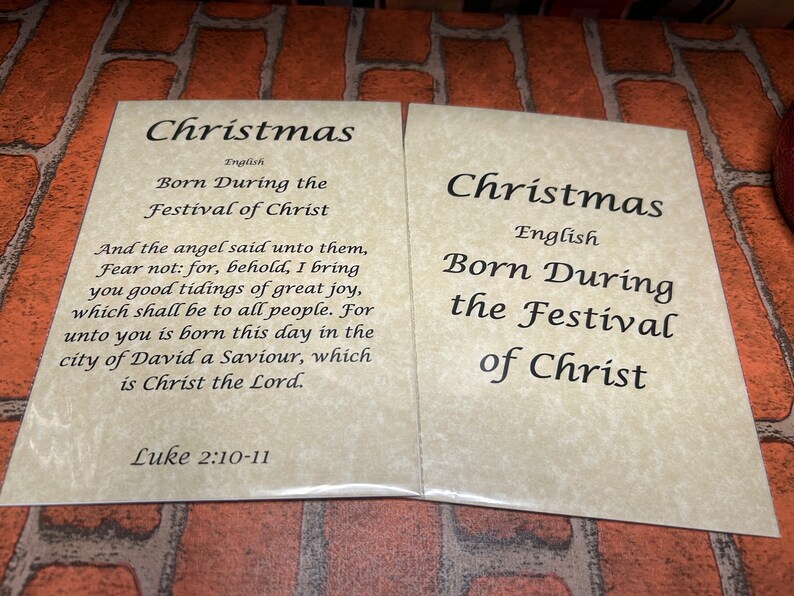 Christmas
English
Born During the
Festival of Christ
And the angel said unto them,
Fear not: for, behold, I bring
you good tidings of great joy,
which shall be to all people. For
unto you is born this day in the
city of David a Saviour, which
is Christ the Lord.
Luke 2:10-11
Christmas
English
Born During
the Festival
of Christ